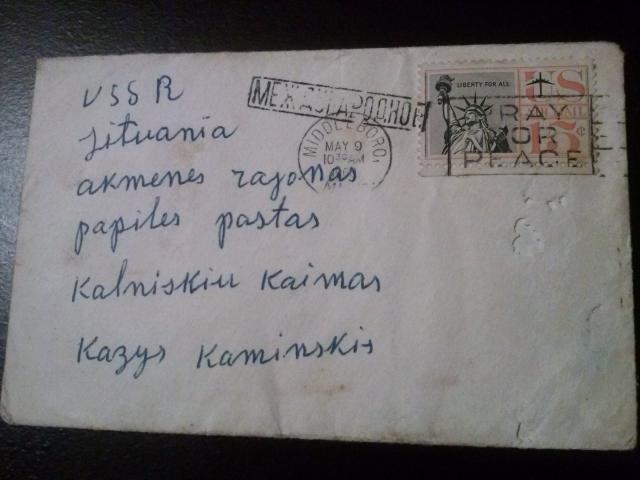 USSR
Lituania
akmenes rajonas
papiles pastas
Kalniskiu Kaimas
Kazys Kaminskis
МЕЖДУНАРОДНОЕ
MIDDLEBORO,
MAY 9
10 30 AM
LIBERTY FOR ALL
US
AIR MAIL
15¢
PRAY
FOR
PEACE